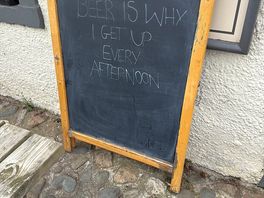 BEER IS WHY
I GET UP
EVERY
AFTERNOON